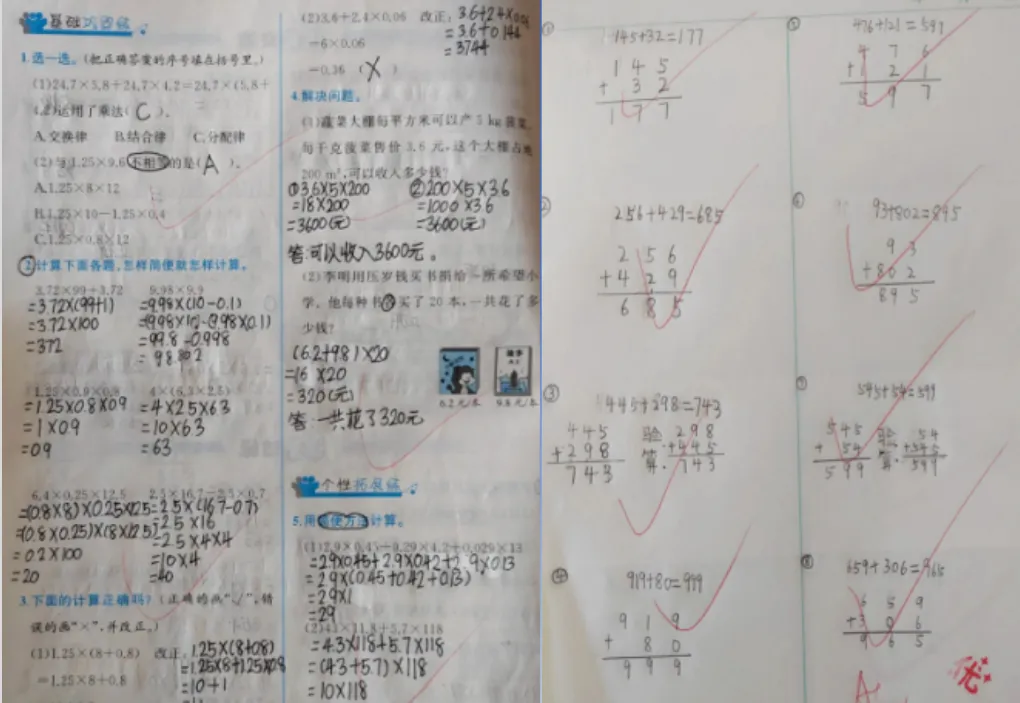 基础巩固练
1.选一选。(把正确答案的序号填在括号里。)
(1)24.7×5.8+24.7×4.2=24.7×(5.8+
4.2)运用了乘法( C )。
A.交换律 B.结合律 C.分配律
(2)与1.25×9.6不相等的是( A )。
A.1.25×8×12
B.1.25×10-1.25×0.4
C.1.25×0.8×12
2.计算下面各题,怎样简便就怎样计算。
3.72×99+3.72 9.98×9.9
=3.72×(99+1) =9.98×(10-0.1)
=3.72×100 =(9.98×10)-(9.98×0.1)
=372 =99.8-0.998
=98.802
1.25×0.9×0.8 4×(6.3×2.5)
=1.25×0.8×0.9 =4×2.5×6.3
=1×0.9 =10×6.3
=0.9 =63
6.4×0.25×12.5 2.5×16.7-2.5×0.7
=(0.8×8)×0.25×12.5 =2.5×(16.7-0.7)
=(0.8×0.25)×(8×12.5) =2.5×16
=0.2×100 =2.5×4×4
=20 =10×4
=40
3.下面的计算正确吗?(正确的画“√”,错
误的画“×”,并改正。)
(1)1.25×(8+0.8) 改正: 1.25×(8+0.8)
=1.25×8+0.8 =1.25×8+1.25×0.8
=10+1
(2)3.6+2.4×0.06 改正: 3.6+2.4×0.06
=6×0.06 =3.6+0.144
=0.36 ( X ) =3.744
4.解决问题。
(1)蔬菜大棚每平方米可以产5 kg菠菜,
每千克菠菜售价3.6元,这个大棚占地
200 m²,可以收入多少钱?
①3.6×5×200 ②200×5×3.6
=18×200 =1000×3.6
=3600(元) =3600(元)
答:可以收入3600元。
(2)李明用压岁钱买书捐给一所希望小
学,他每种书各买了20本,一共花了多
少钱?
(6.2+9.8)×20
=16×20
=320(元)
答:一共花了320元
6.2元/本 9.8元/本
个性拓展练
5.用简便方法计算。
(1)2.9×0.45+0.29×4.2+0.029×13
=2.9×0.45+2.9×0.42+2.9×0.13
=2.9×(0.45+0.42+0.13)
=2.9×1
=2.9
(2)43×11.8+5.7×118
=4.3×118+5.7×118
=(4.3+5.7)×118
=10×118
① 145+32=177
145
+32
177
② 256+429=685
256
+429
685
③ 445+298=743
445 验 298
+298 算. +445
743 743
④ 919+80=999
919
+ 80
999
⑤ 476+121=597
476
+121
597
⑥ 93+802=895
93
+802
895
⑦ 545+54=599
545 验 54
+ 54 算. +545
599 599
⑧ 659+306=965
659
+306
965
A
优